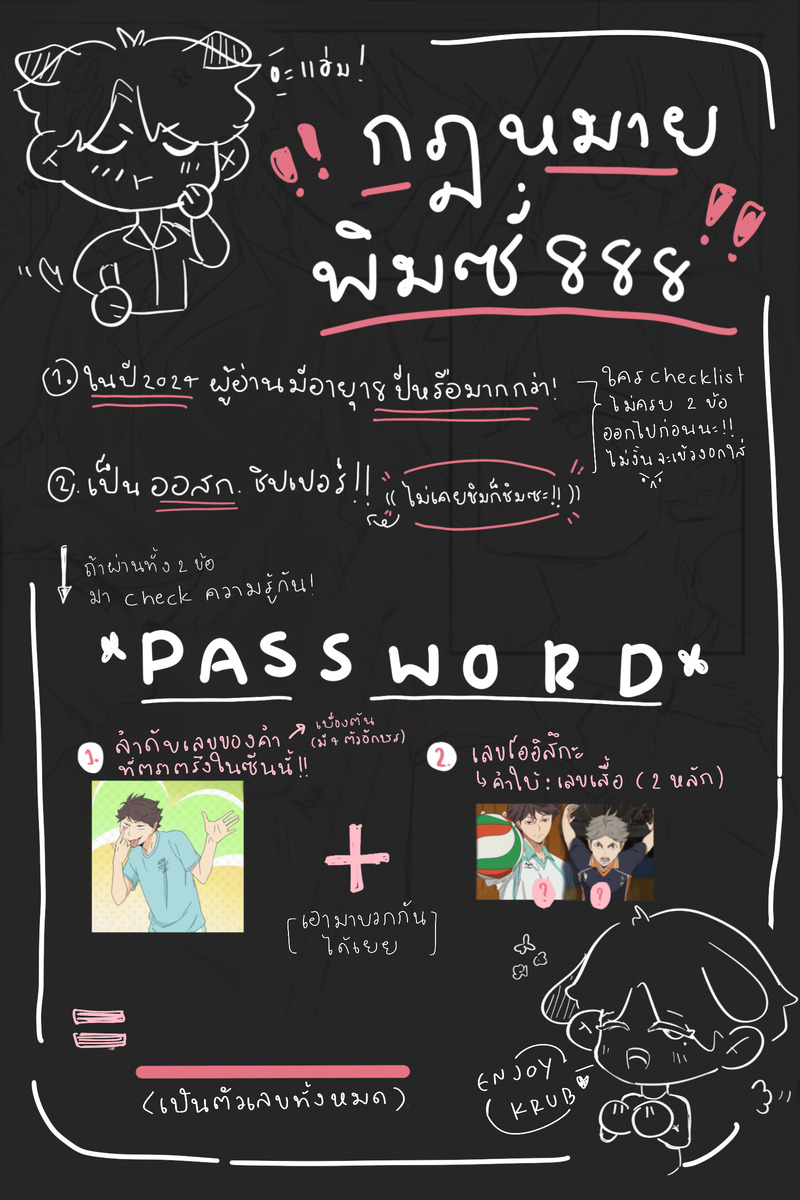 แฮ่ม!
!! กฎหมาย
พิมซ์ 888 !!
1. ในปี 2024 ผู้อ่านมีอายุ 18 ปีหรือมากกว่า!
ใคร checklist
ไม่ครบ 2 ข้อ
ออกไปก่อนนะ!!
ไม่งั้นจะเขวี้ยงอกใส่
2. เป็น ออสก. ชิปเปอร์!! (( ไม่เคยชิมก็ชิมซะ!! ))
ถ้าผ่านทั้ง 2 ข้อ
มา check ความรู้กัน!
*PASSWORD*
1. ลำดับเลขของคำ
ที่ตราตรึงในซีนนี้!!
เบื้องต้น
(มี 4 ตัวอักษร)
2. เลขโออิสึกะ
↳ คำใบ้ : เลขเสื้อ (2 หลัก)
? ?
+
[เอามาบวกกัน
ได้เยย]
=
(เป็นตัวเลขทั้งหมด)
ENJOY
KRUB